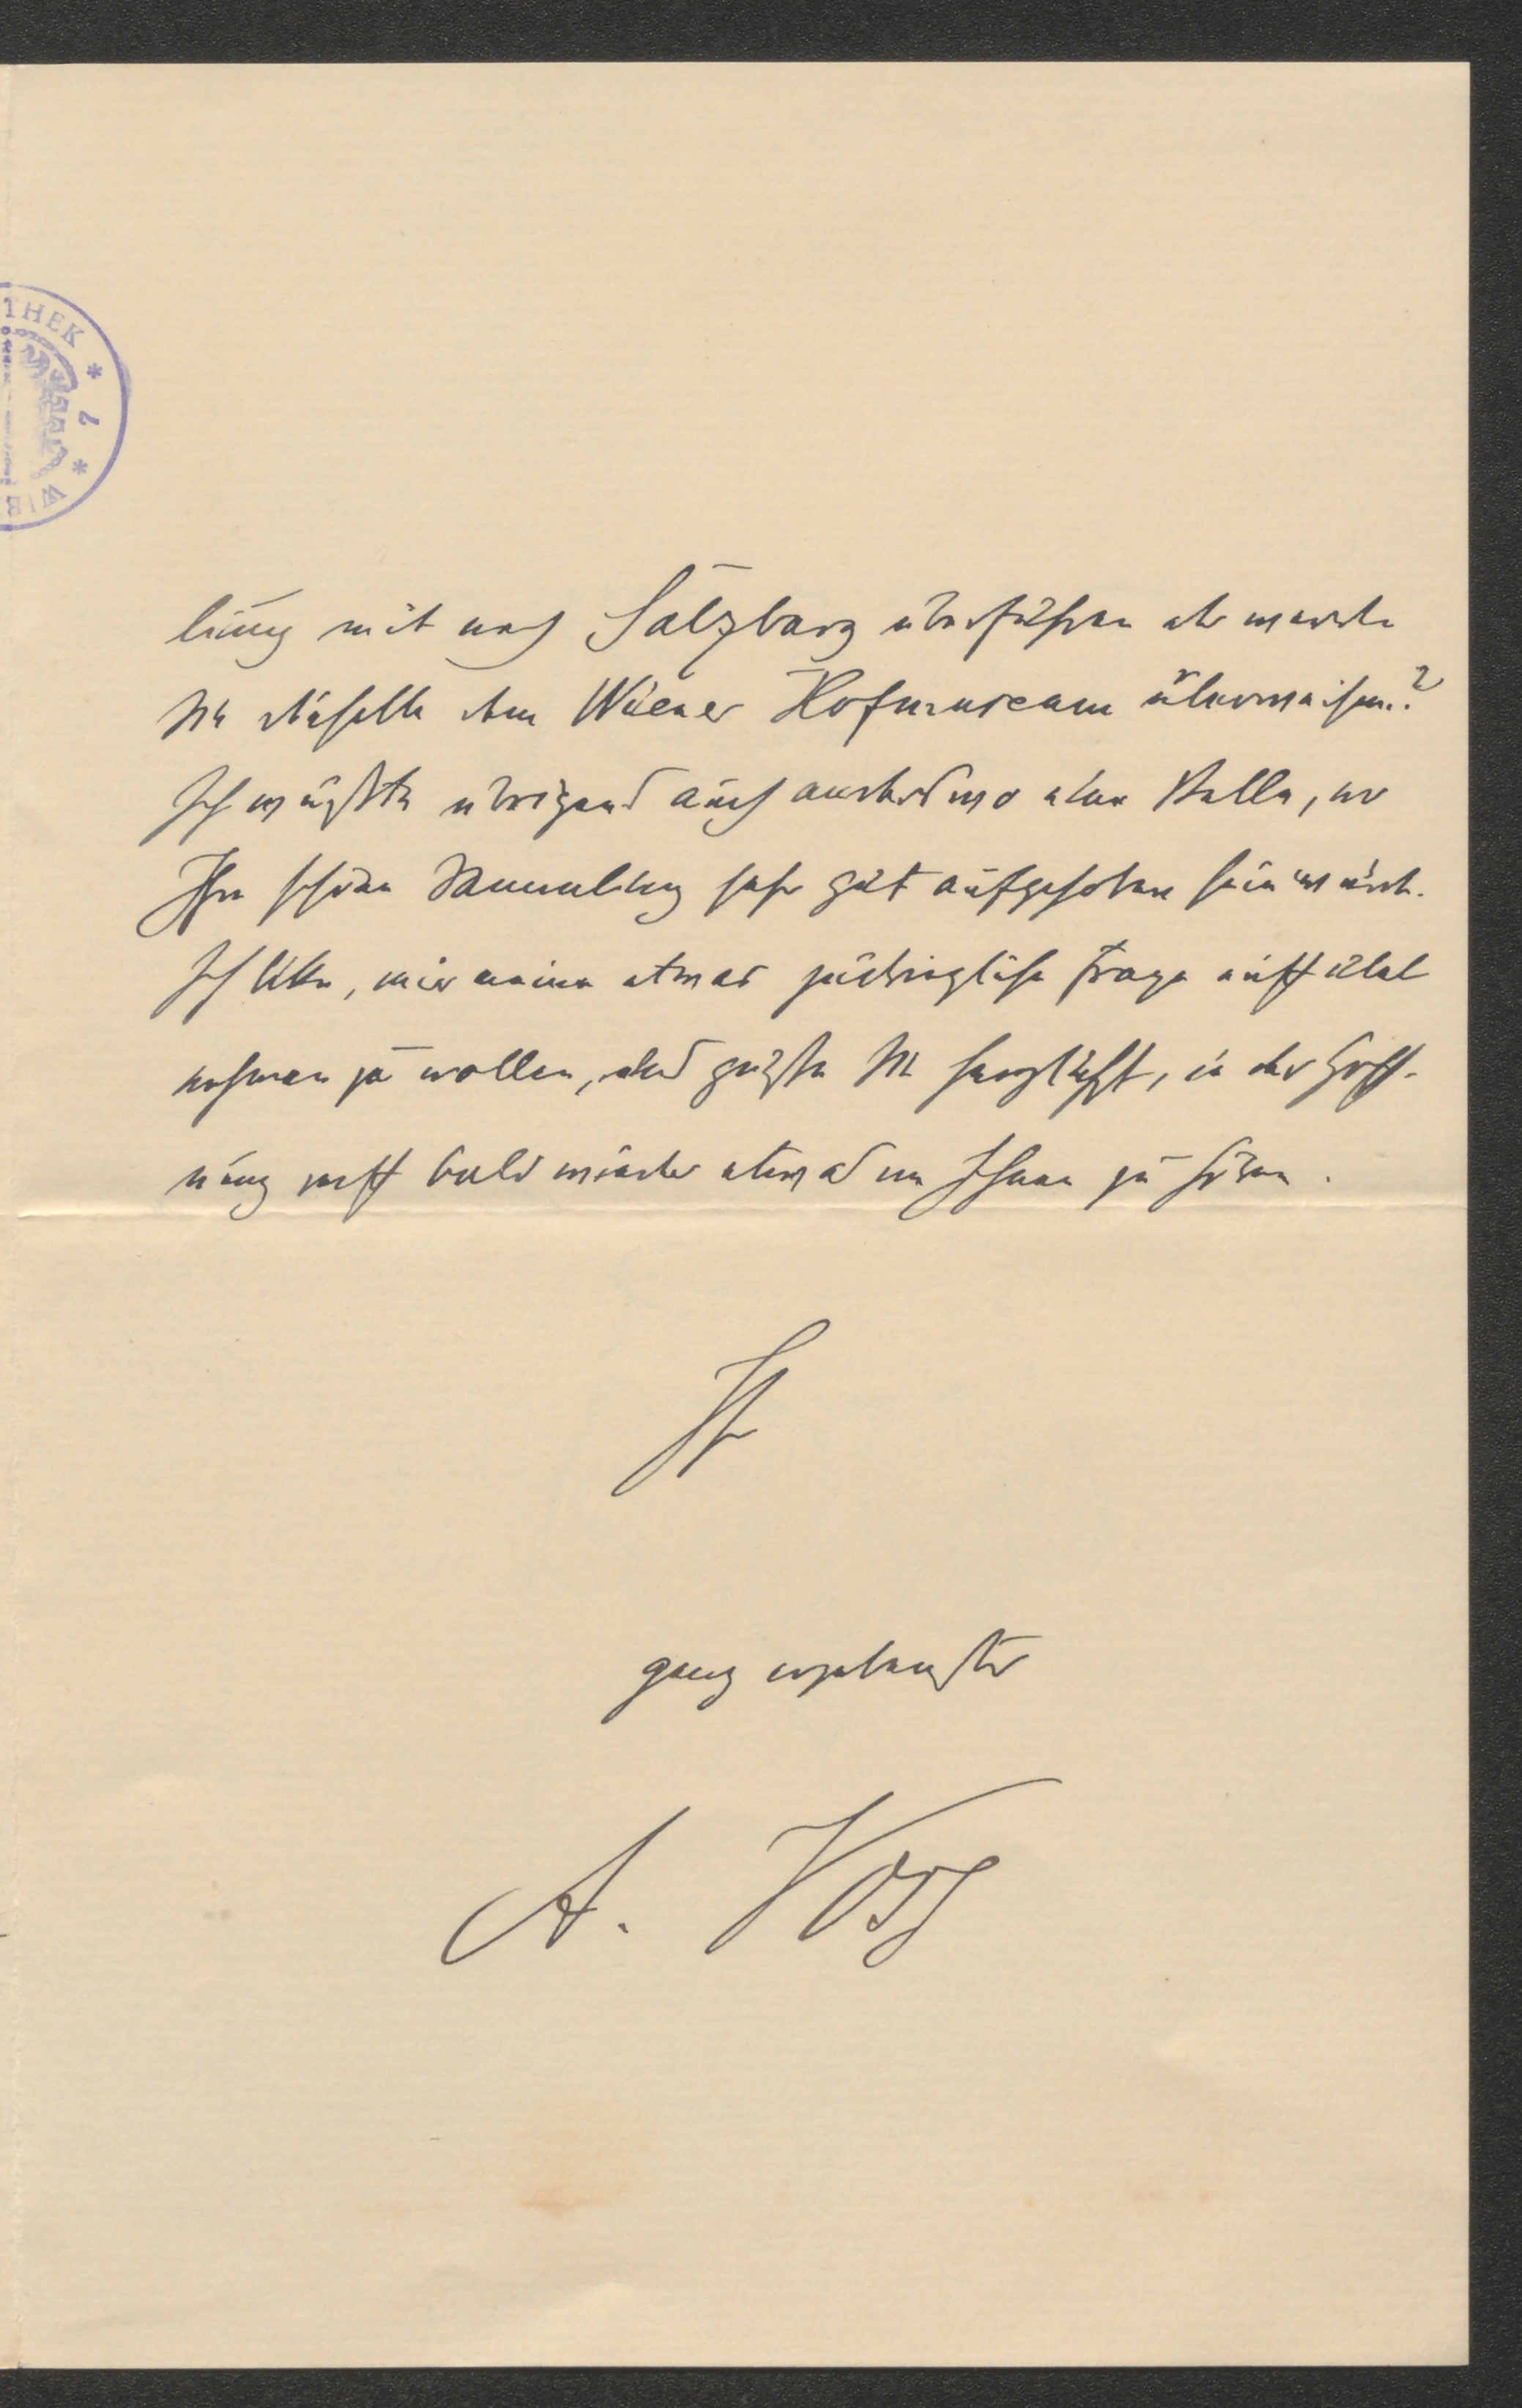 THEK * 2 * WIE
lung mit nach Salzburg überführen oder werden
Sie dieselbe dem Wiener Hofmuseum überweisen?
Ich wüßte übrigens auch anderswo eine Stelle, wo
Ihre schöne Sammlung sehr gut aufgehoben sein würde.
Ich bitte, mir meine etwas zudringliche Frage nicht übel
nehmen zu wollen, und grüße Sie herzlichst, in der Hoff-
nung recht bald wieder etwas von Ihnen zu hören.
Ihr
ganz ergebenster
A. Voss